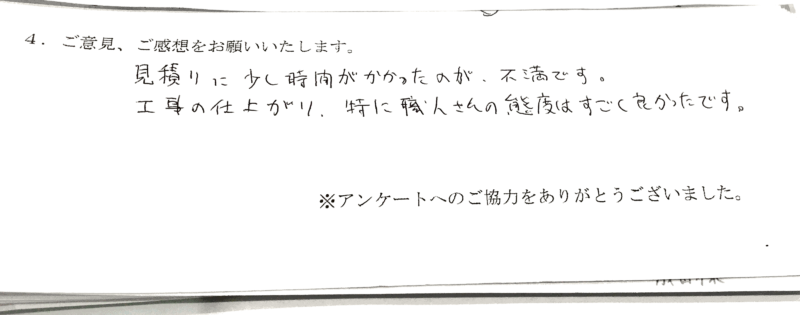 4. ご意見、ご感想をお願いいたします。
見積りに少し時間がかかったのが、不満です。
工事の仕上がり、特に職人さんの態度はすごく良かったです。
※アンケートへのご協力をありがとうございました。